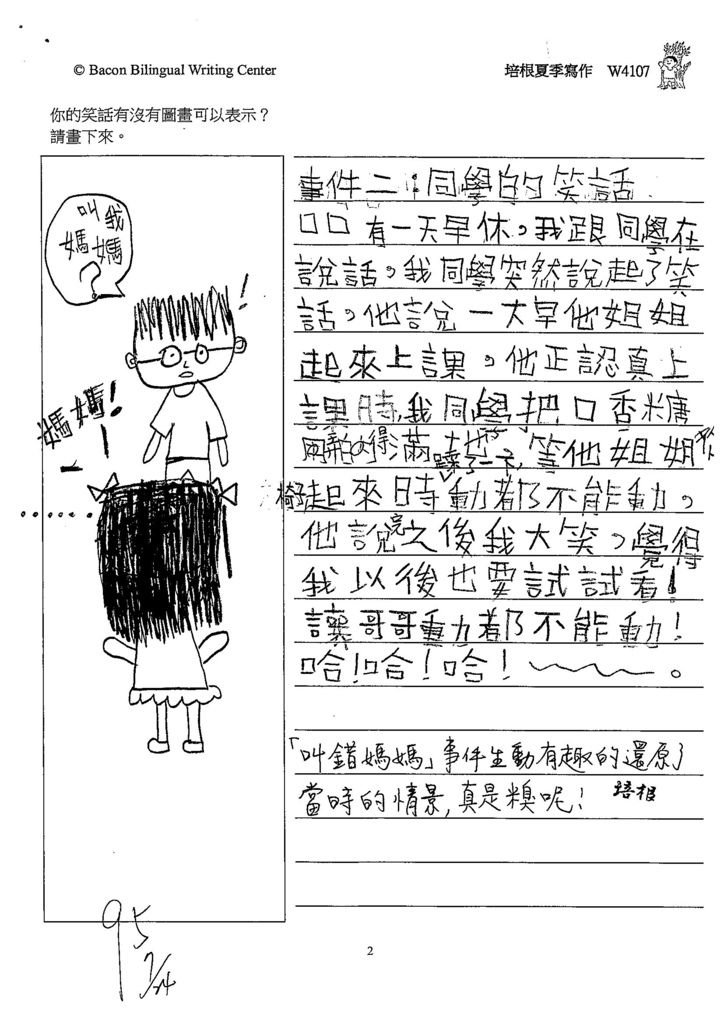 © Bacon Bilingual Writing Center
培根夏季寫作 W4107
你的笑話有沒有圖畫可以表示？
請畫下來。
叫我
媽媽
？
！
媽媽！
事件二：同學的笑話
口口有一天早休。我跟同學在
說話。我同學突然說起了笑
話。他說一大早他姐姐
起來上課。他正認真上
課時，我同學把口香糖
滿地 等他姐姐
椅子起來時動都不能動。
他說完之後我大笑。覺得
我以後也要試試看！
讓哥哥動都不能動！
哈！哈！哈！～～。
「叫錯媽媽」事件生動有趣的還原了
當時的情景，真是糗呢！ 培根
95
7/24
2